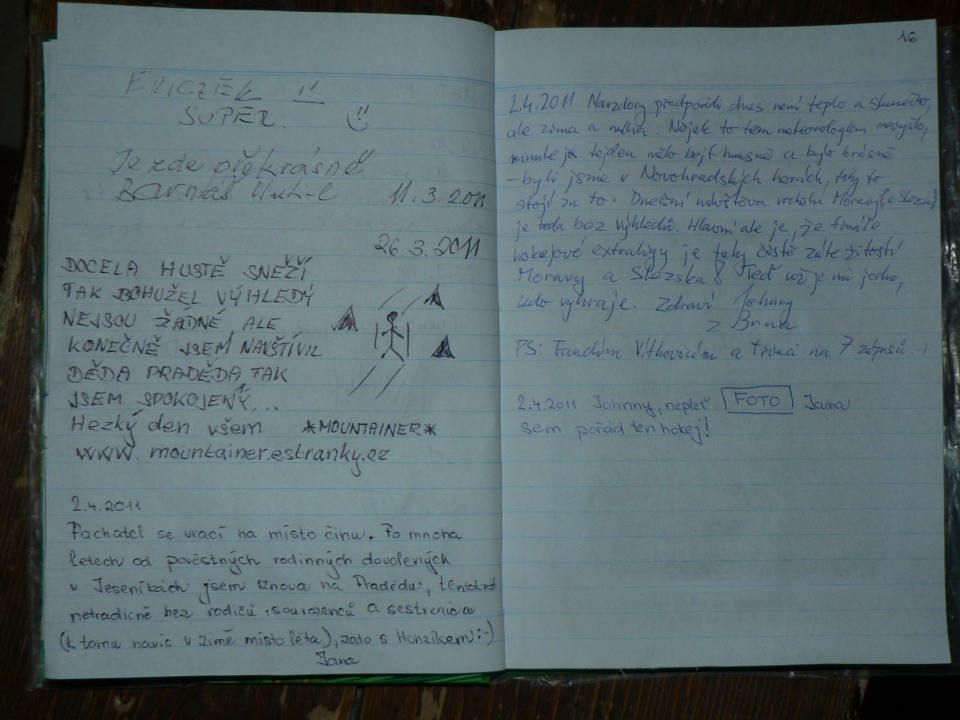 FRICZEK !!
SUPER.
Je zde překrásně
11.3.2011
26.3.2011
DOCELA HUSTĚ SNĚŽÍ
TAK BOHUŽEL VÝHLEDY
NEJSOU ŽÁDNÉ, ALE
KONEČNĚ JSEM NAVŠTÍVIL
DĚDA PRADĚDA TAK
JSEM SPOKOJENÝ...
Hezký den všem *MOUNTAINER*
www.mountainer.estranky.cz
2.4.2011
Pachatel se vrací na místo činu. Po mnoha
letech od pověstných rodinných dovolených
v Jeseníkách jsem znova na Pradědu, tentokrát
netradičně bez rodičů, sourozenců a sestřenice
(k tomu navíc v zimě místo léta), zato s Honzíkem :-)
Jana
16
2.4.2011 Navzdory předpovědi dnes není teplo a slunečno,
ale zima a mlha. Nějak to těm meteorologům nevyšlo,
minulej tejden mělo bejt hnusně a bylo krásně
- byli jsme v Novohradských horách, taky to
stojí za to. Dnešní návštěva vrcholu Moravy a Slezska
je teda bez výhledů. Hlavní ale je, že finále
hokejové extraligy je taky čistě záležitostí
Moravy a Slezska! Teď už je mi jedno,
kdo vyhraje. Zdraví Johnny
z Brna
PS: Fandím Vítkovicím a Třinci na 7 zápasů :-)
2.4.2011 Johnny, nepleť FOTO Jana
sem pořád ten hokej!